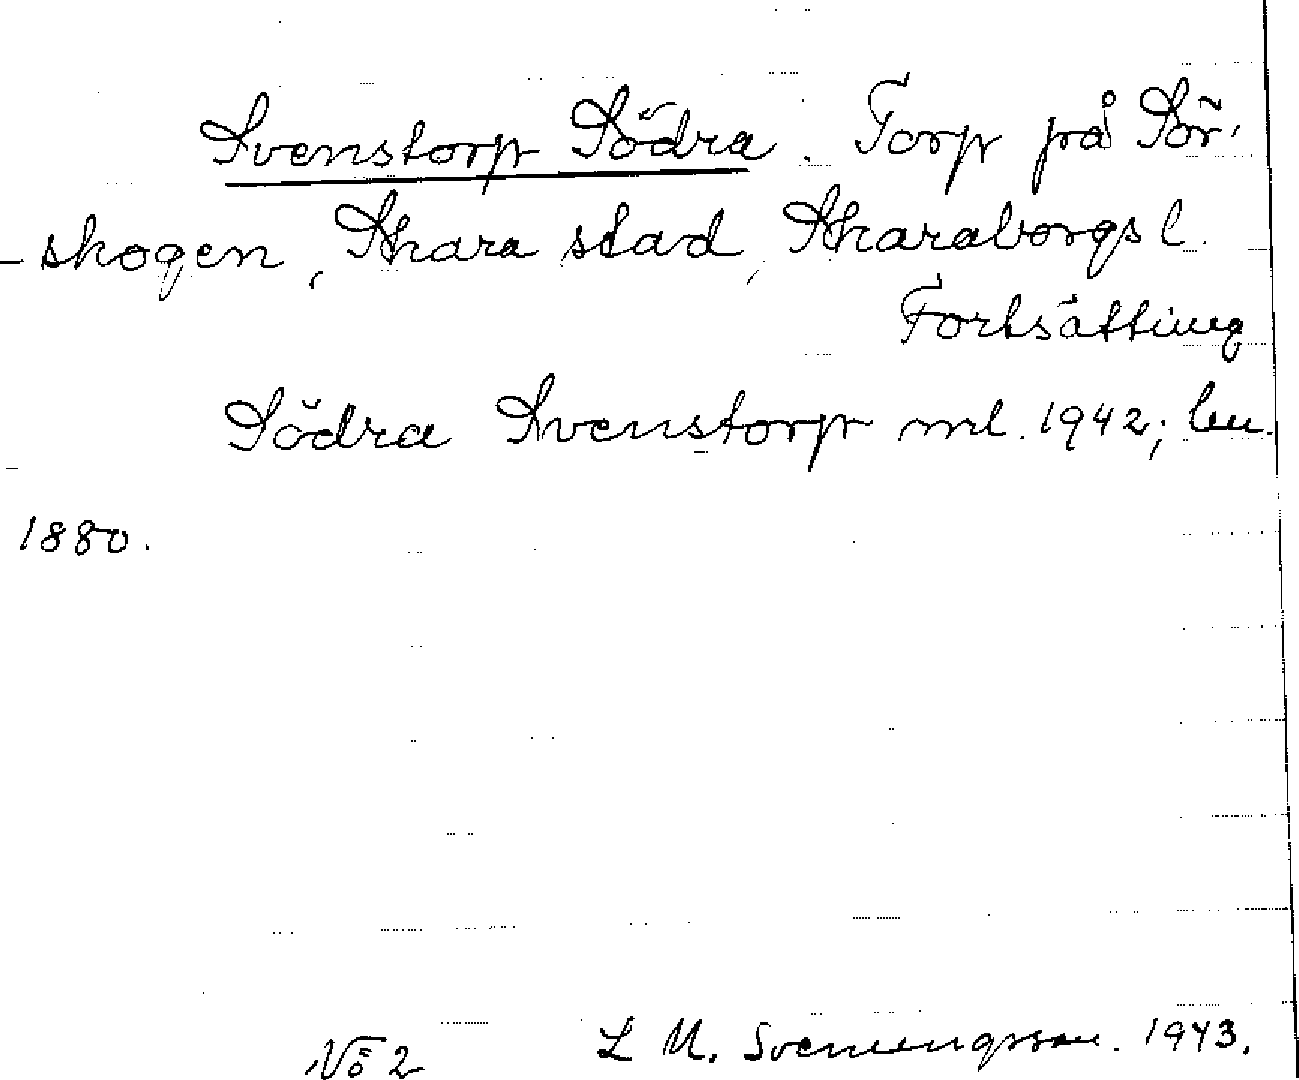 Svenstorp Södra. Torp på Sör-
skogen, Skara stad, Skaraborgs l.
Fortsättning
Södra Svenstorp ml. 1942; lm.
1880.
No 2 L M. Svenungsson. 1943.